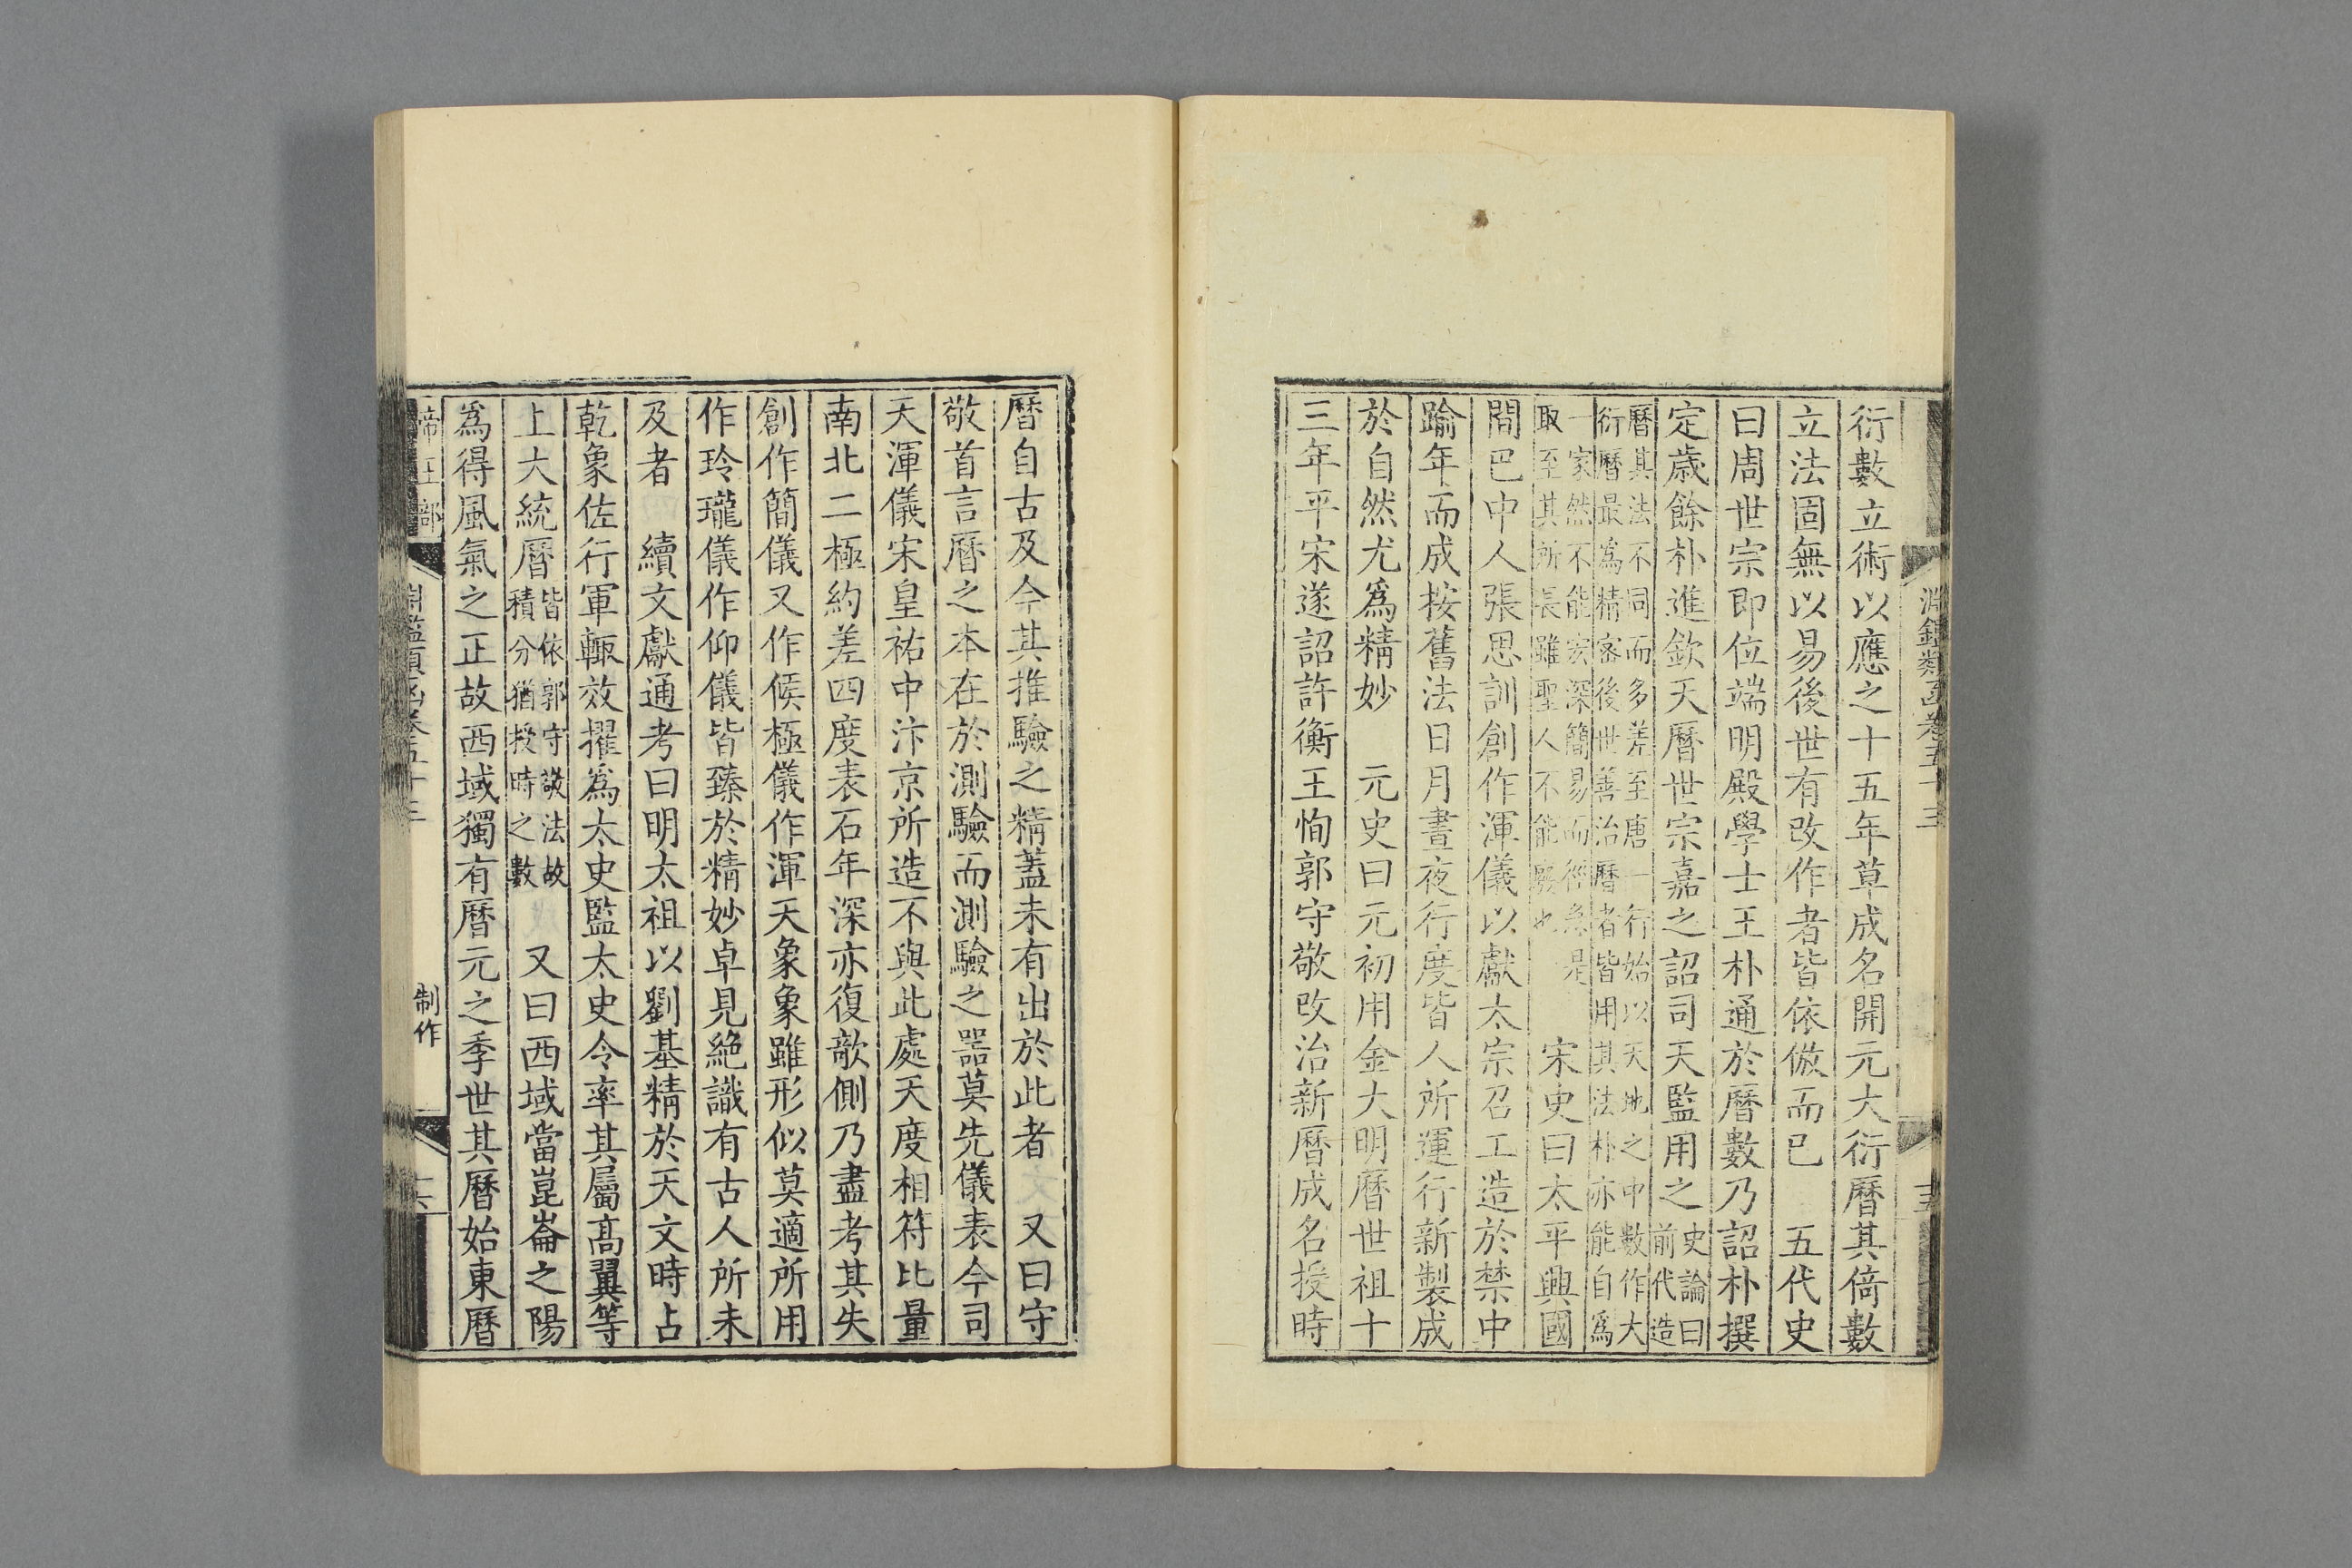 淵鑑類函卷五十三　十五
衍數立術以應之十五年草成名開元大衍曆其倚數
立法固無以易後世有改作者皆依倣而已　五代史
曰周世宗即位端明殿學士王朴通於曆數乃詔朴撰
定歲餘朴進欽天曆世宗嘉之詔司天監用之史論曰
前代造
曆其法不同而多差至唐一行始以天地之中數作大
衍曆最爲精密後世善治曆者皆用其法朴亦能自爲
一家然不能宏深簡易而徑急是
取至其所長雖聖人不能廢也　宋史曰太平興國
間巴中人張思訓創作渾儀以獻太宗召工造於禁中
踰年而成按舊法日月晝夜行度皆人所運行新製成
於自然尤爲精妙　元史曰元初用金大明曆世祖十
三年平宋遂詔許衡王恂郭守敬改治新曆成名授時
曆自古及今其推驗之精蓋未有出於此者　又曰守
敬首言曆之本在於測驗而測驗之器莫先儀表今司
天渾儀宋皇祐中汴京所造不與此處天度相符比量
南北二極約差四度表石年深亦復欹側乃盡考其失
創作簡儀又作候極儀作渾天象象雖形似莫適所用
作玲瓏儀作仰儀皆臻於精妙卓見絶識有古人所未
及者　續文獻通考曰明太祖以劉基精於天文時占
乾象佐行軍輒效擢爲太史監太史令率其屬高翼等
上大統曆皆依郭守敬法故
積分猶授時之數　又曰西域當崑崙之陽
爲得風氣之正故西域獨有曆元之季世其曆始東曆
帝王部　淵鑑類函卷五十三　制作　十六